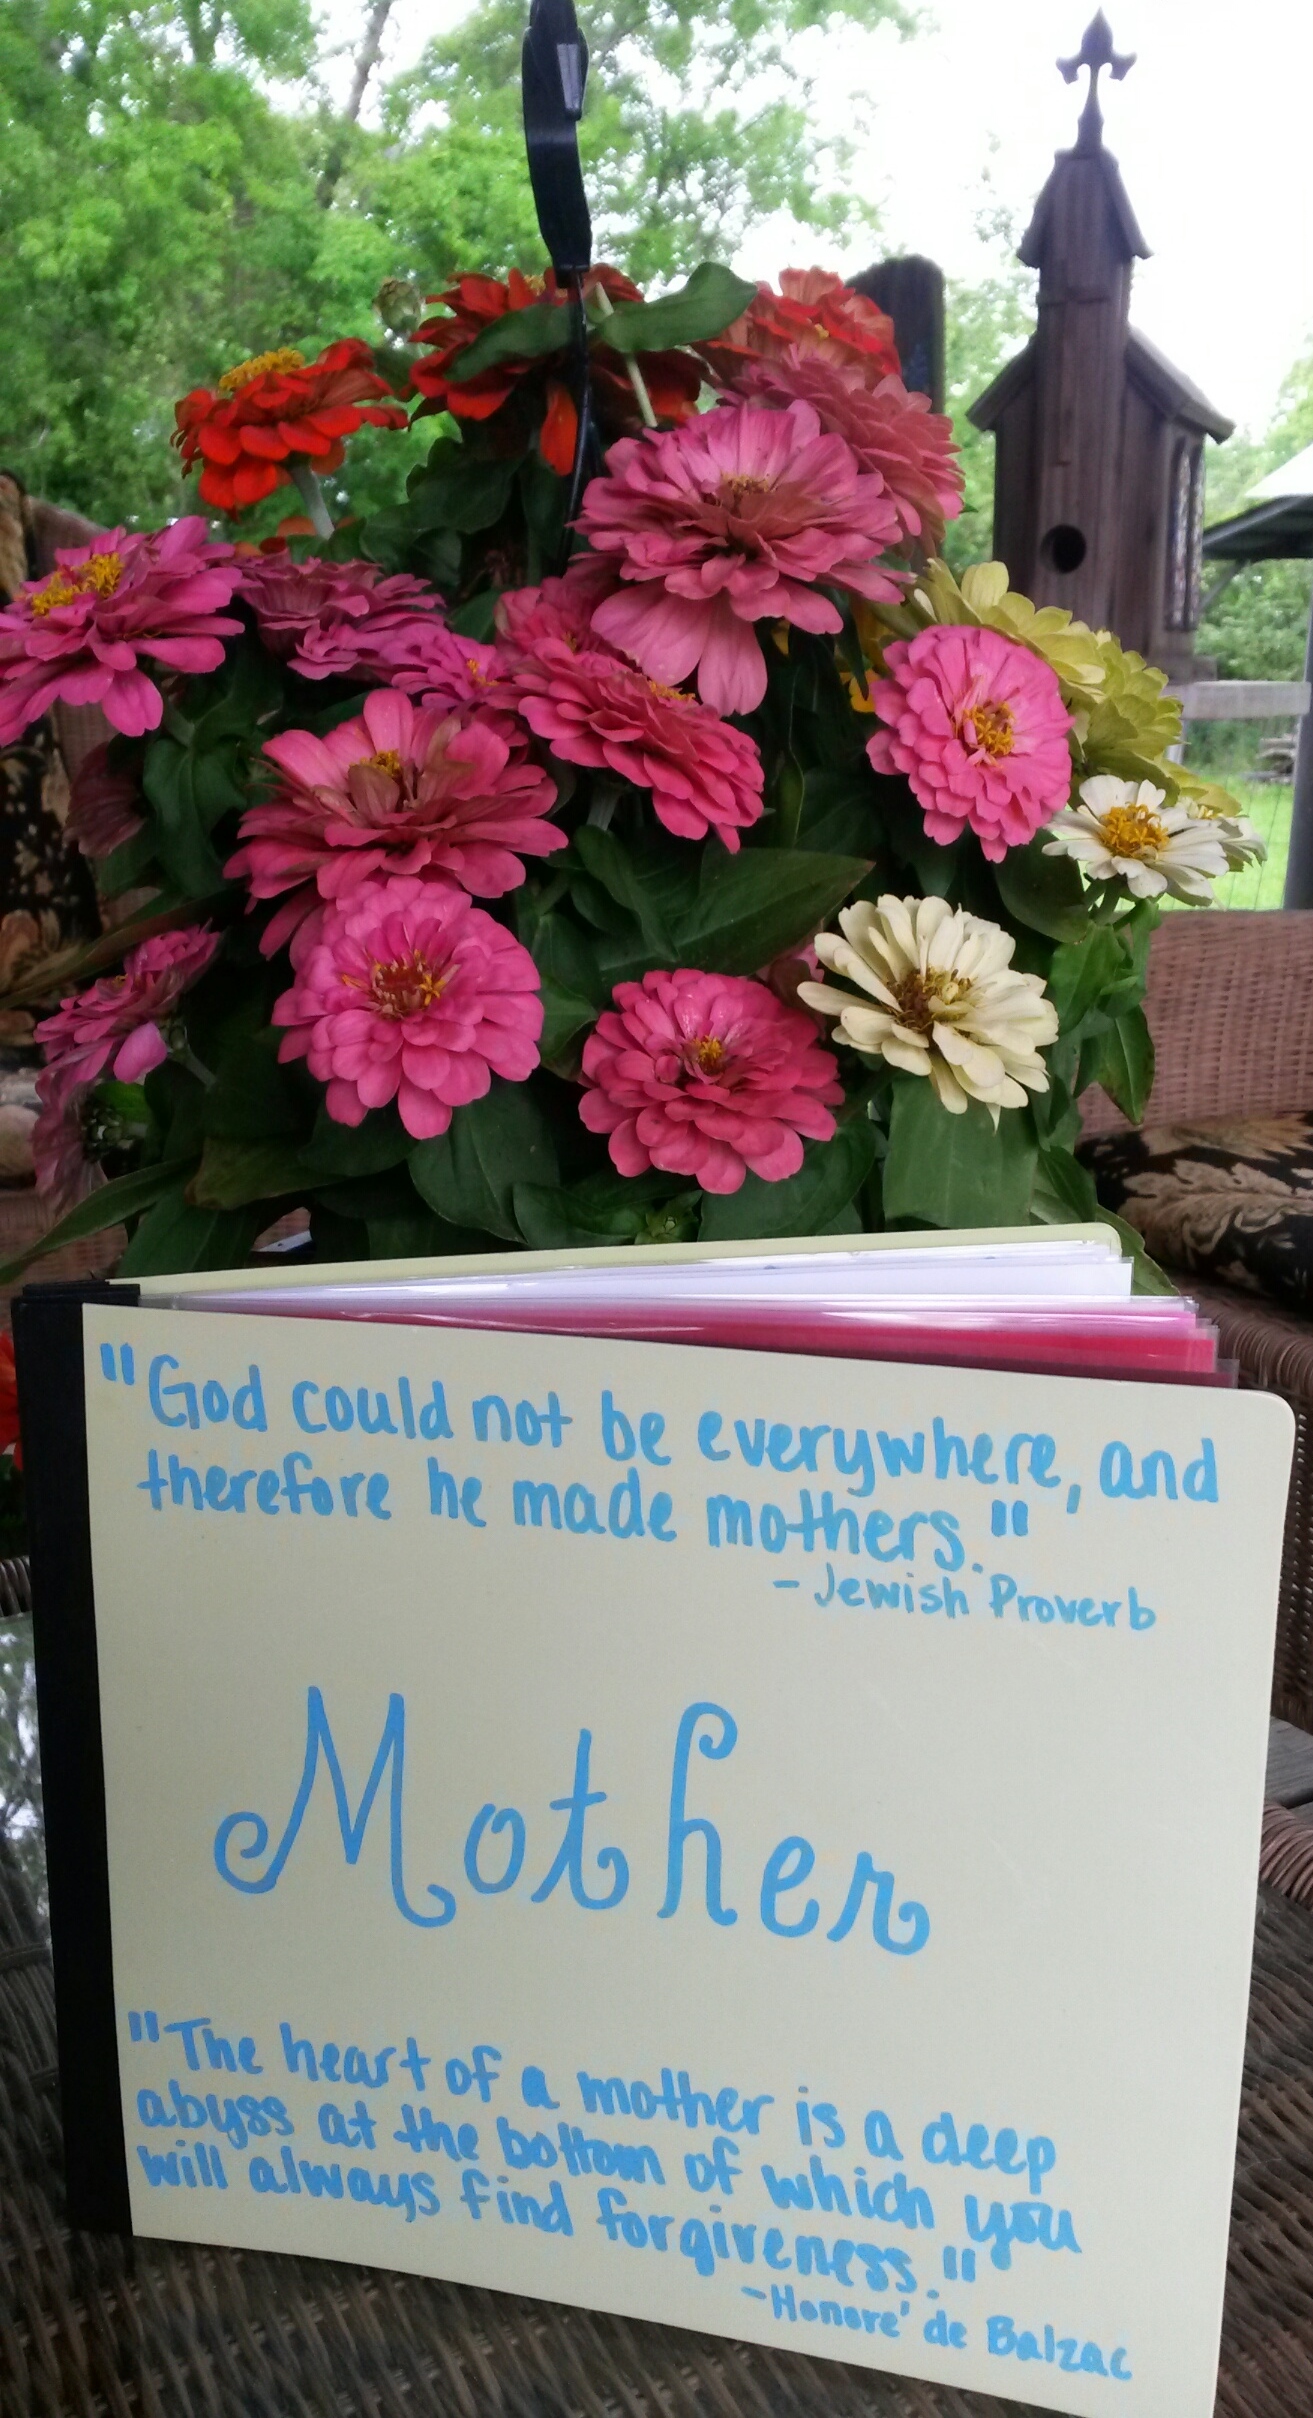 "God could not be everywhere, and
therefore he made mothers."
- Jewish Proverb
Mother
"The heart of a mother is a deep
abyss at the bottom of which you
will always find forgiveness."
-Honore' de Balzac